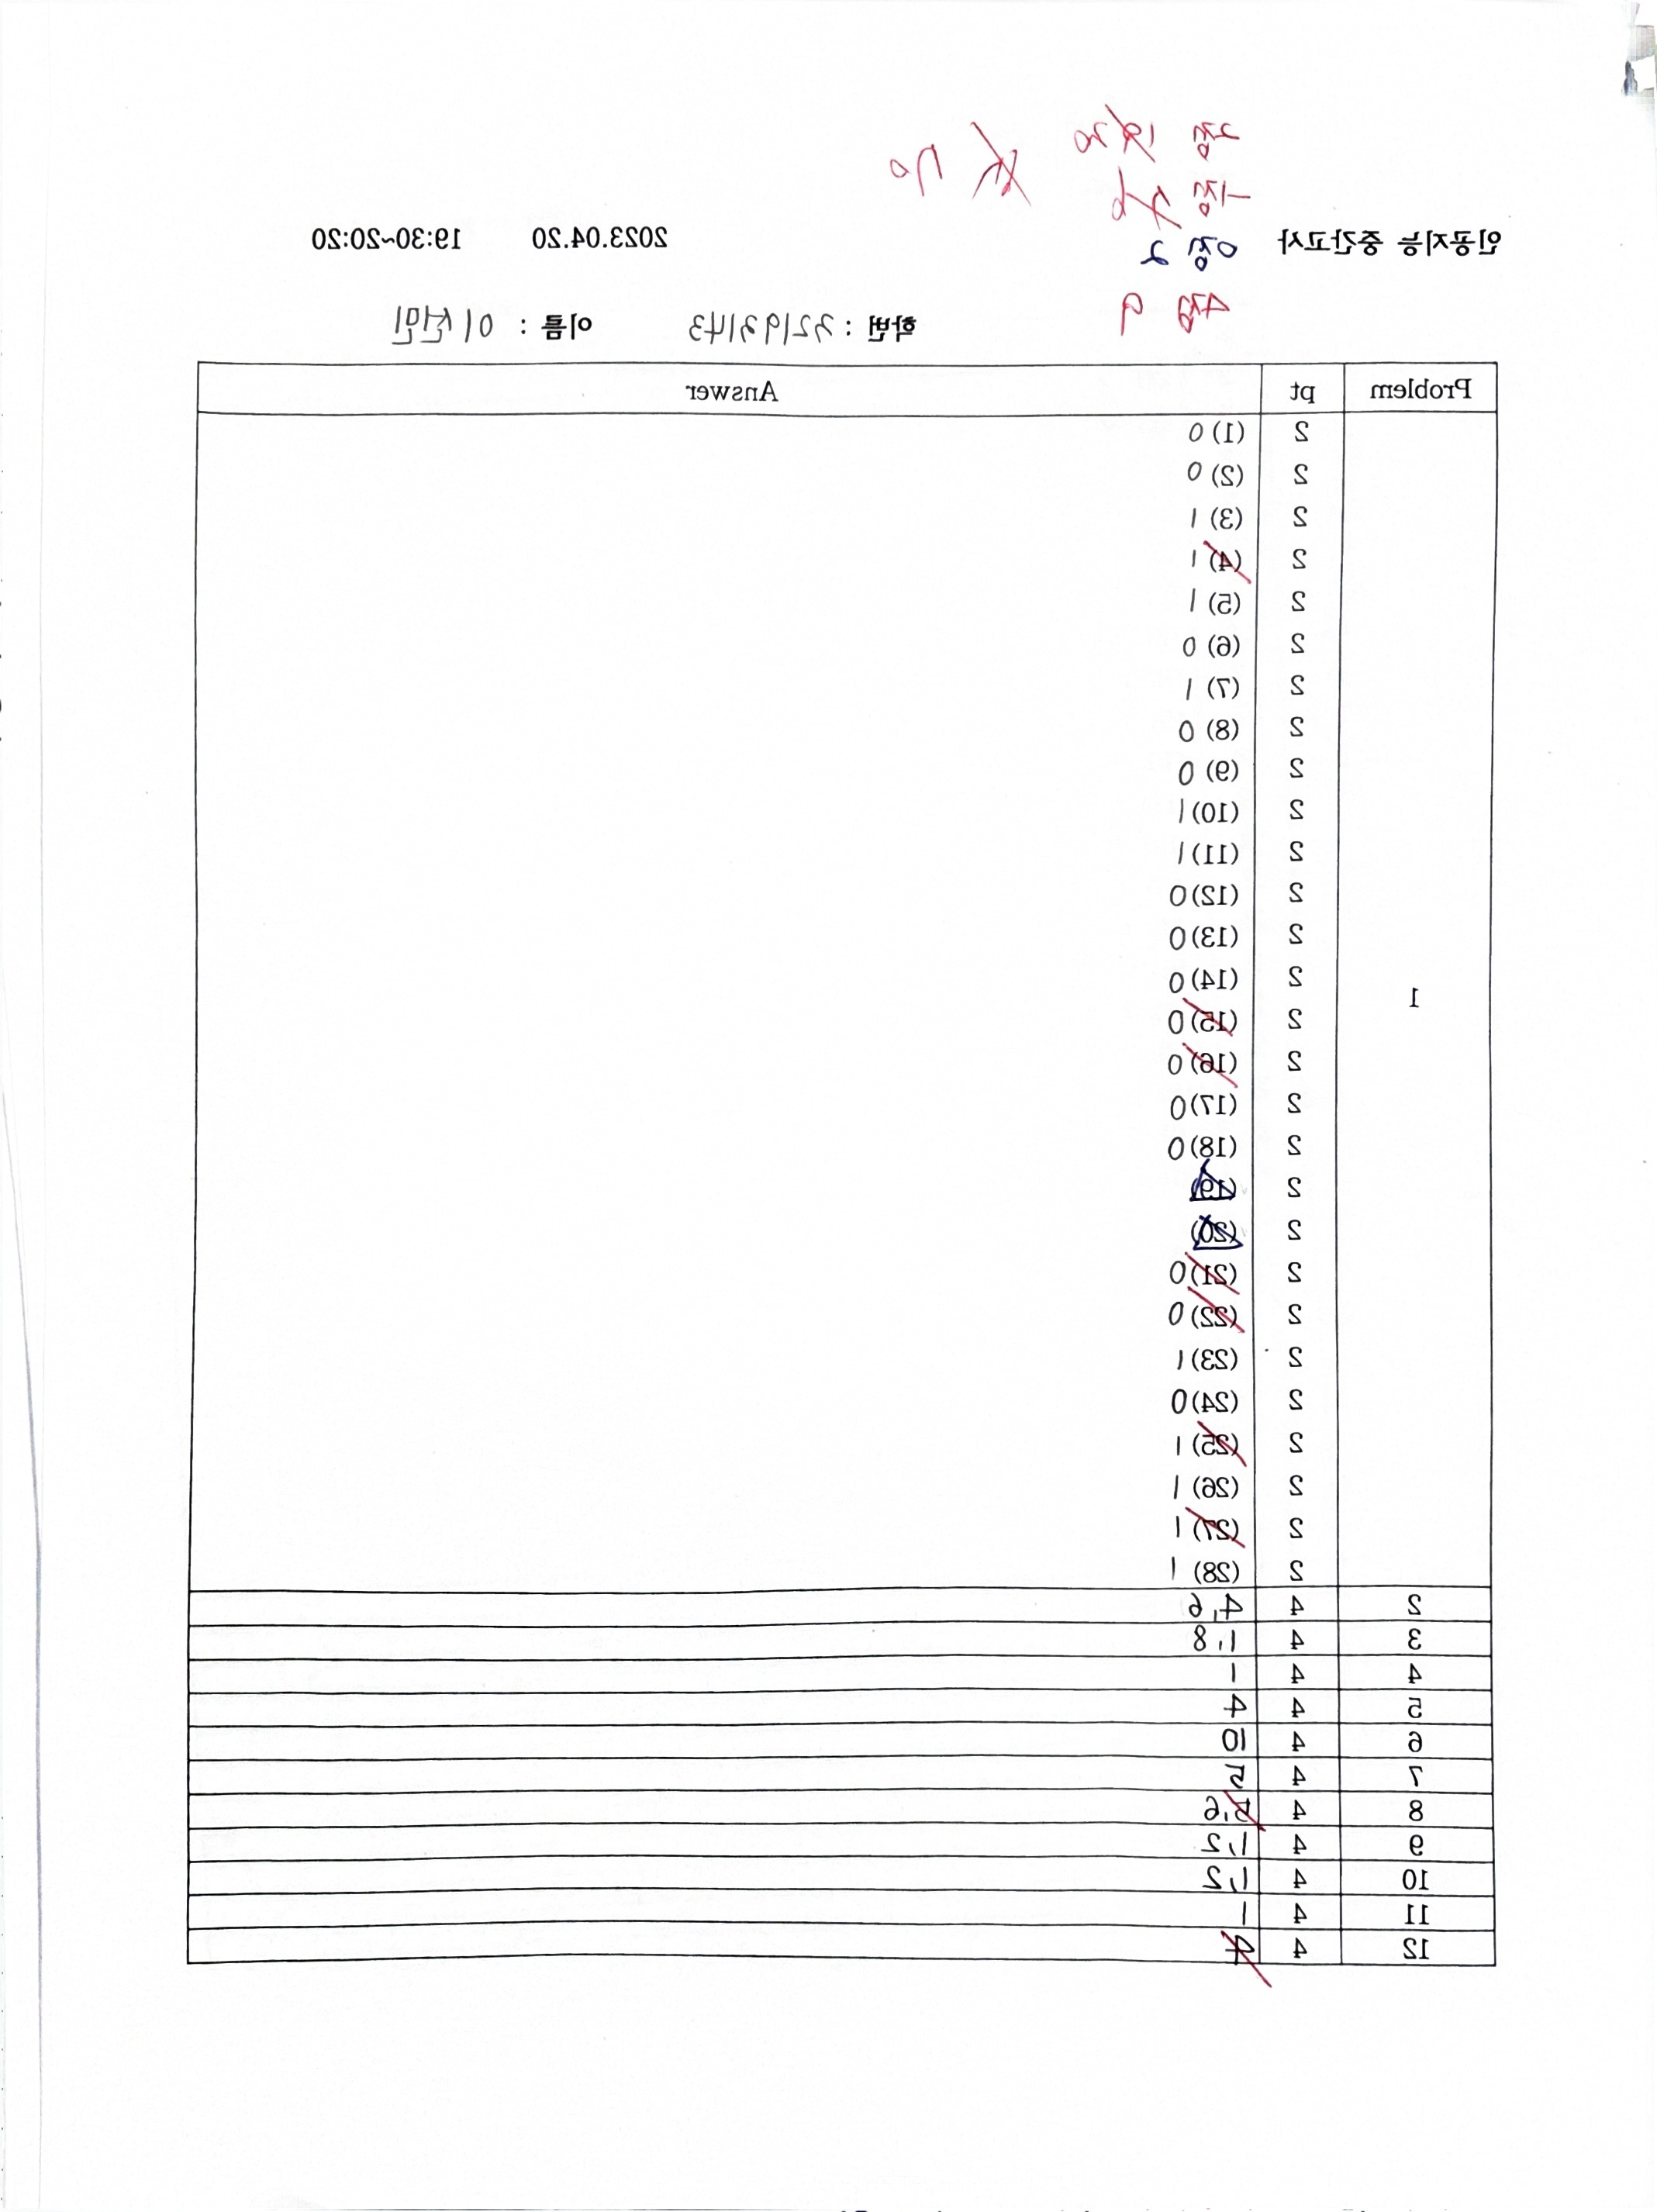 2점 20
-1점 6
70
인공지능 중간고사 0점 2 2023.04.20 19:30~20:20
4점 9
학번 : 32193143 이름 : 이선민
Problem pt Answer
1
2 (1) 0
2 (2) 0
2 (3) 1
2 (4) 1
2 (5) 1
2 (6) 0
2 (7) 1
2 (8) 0
2 (9) 0
2 (10) 1
2 (11) 1
2 (12) 0
2 (13) 0
2 (14) 0
2 (15) 0
2 (16) 0
2 (17) 0
2 (18) 0
2 (19)
2 (20)
2 (21) 0
2 (22) 0
2 (23) 1
2 (24) 0
2 (25) 1
2 (26) 1
2 (27) 1
2 (28) 1
2 4 4, 6
3 4 1, 8
4 4 1
5 4 4
6 4 10
7 4 5
8 4 5, 6
9 4 1, 2
10 4 1, 2
11 4 1
12 4 4